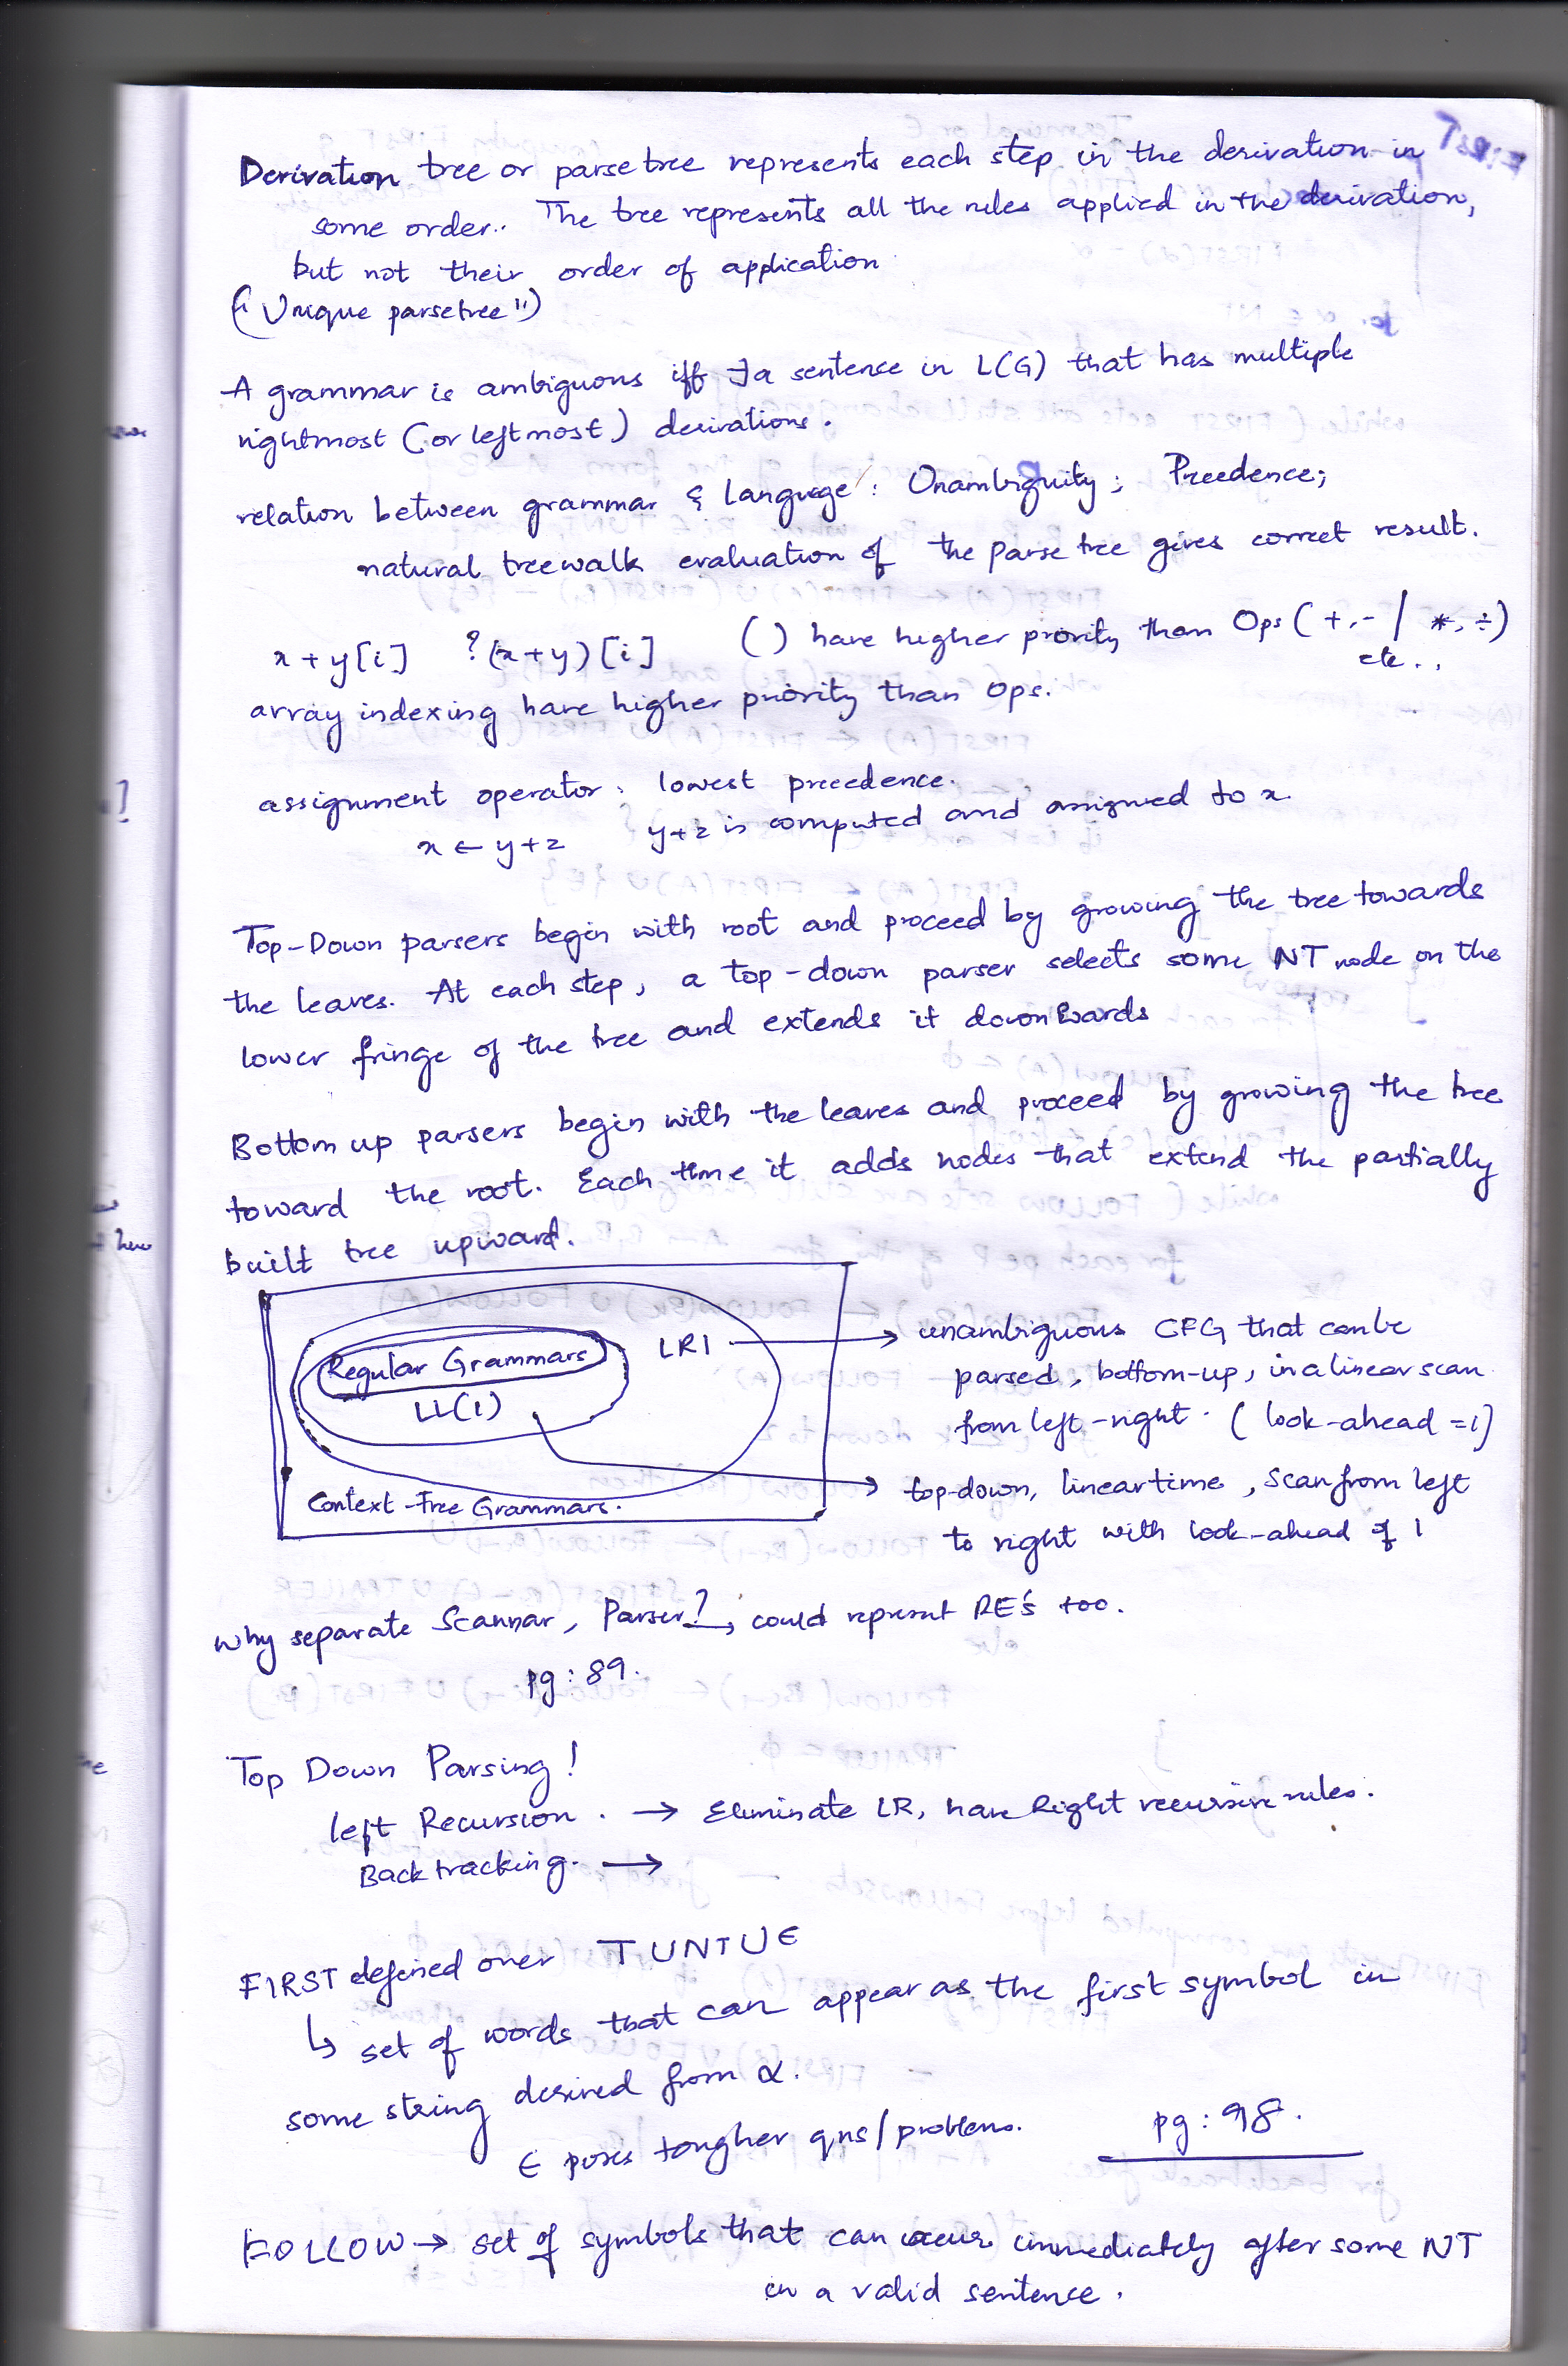 Derivation tree or parse tree represents each step in the derivation in
some order.. The tree represents all the rules applied in the derivation,
but not their order of application
("Unique parsetree")
A grammar is ambiguous iff ∃ a sentence in L(G) that has multiple
rightmost (or leftmost) derivations.
relation between grammar & language: Unambiguity; Preedence;
natural treewalk evaluation of the parse tree gives correct result.
x + y[i] ?(x+y)[i] () have higher priority than Ops (+,- / *, ÷)
etc..
array indexing have higher priority than ops.
assignment operator: lowest precedence.
x ← y+z y+z is computed and assigned to x.
Top-Down parsers begin with root and proceed by growing the tree towards
the leaves. At each step, a top-down parser selects some NT node on the
lower fringe of the tree and extends it downwards
Bottom up parsers begin with the leaves and proceed by growing the tree
toward the root. Each time it adds nodes that extend the partially
built tree upward.
Regular Grammars
LL(1)
LR1 → unambiguous CFG that can be
parsed, bottom-up, in a linear scan
from left-right. (look-ahead = 1)
Context-Free Grammars.
→ top-down, linear time, Scan from left
to right with look-ahead of 1
Why separate Scannar, Parser? → could represent RE's too.
pg: 89.
Top Down Parsing!
left Recursion. → Eliminate LR, have Right recursive rules.
Backtracking. →
FIRST defined over T U NT U ∈
↳ set of words that can appear as the first symbol in
some string derived from α.
∈ poses tougher qns/problems.
pg: 98.
FOLLOW → set of symbols that can occur immediately after some NT
in a valid sentence.